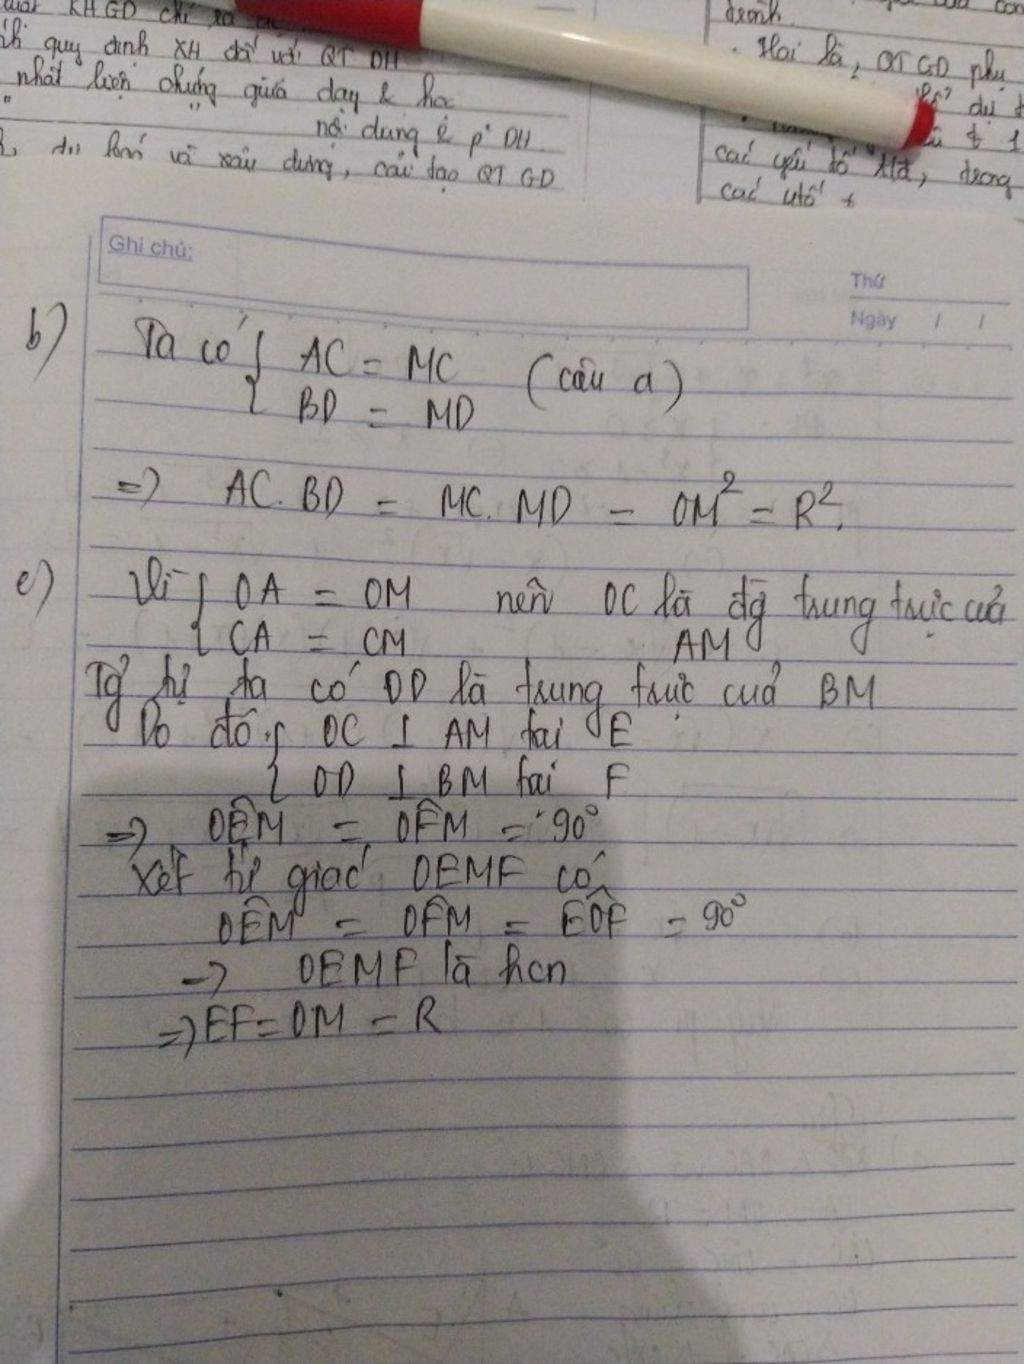 KHGD chỉ ra
quy định XH đối với QT DH
nhất biện chứng giữa dạy & học
nội dung & p² DH
và xây dựng, cải tạo QT GD
Hai là, QT GD phụ
các yếu tố
các ytố t
Ghi chú:
Thứ
Ngày / /
b) Ta có { AC = MC (câu a)
BD = MD
=> AC.BD = MC.MD = OM² = R².
c) Vì { OA = OM nên OC là đg trung trực của
CA = CM AM
Tg tự ta có OD là trung trực của BM
Do đó { OC ⊥ AM tại E
OD ⊥ BM tại F
=> OÊM = OF̂M = 90°
Xét tứ giác OEMF có
OÊM = OF̂M = EÔF = 90°
=> OEMF là hcn
=> EF = OM = R